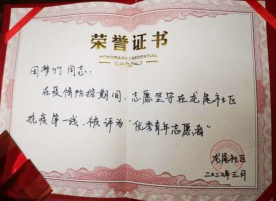 荣誉证书
HONORARY CREDENTIAL
同志：
在疫情防控期间，志愿坚守在龙尾社区
抗疫第一线，被评为“优秀青年志愿者”
龙尾社区
二〇二〇年三月